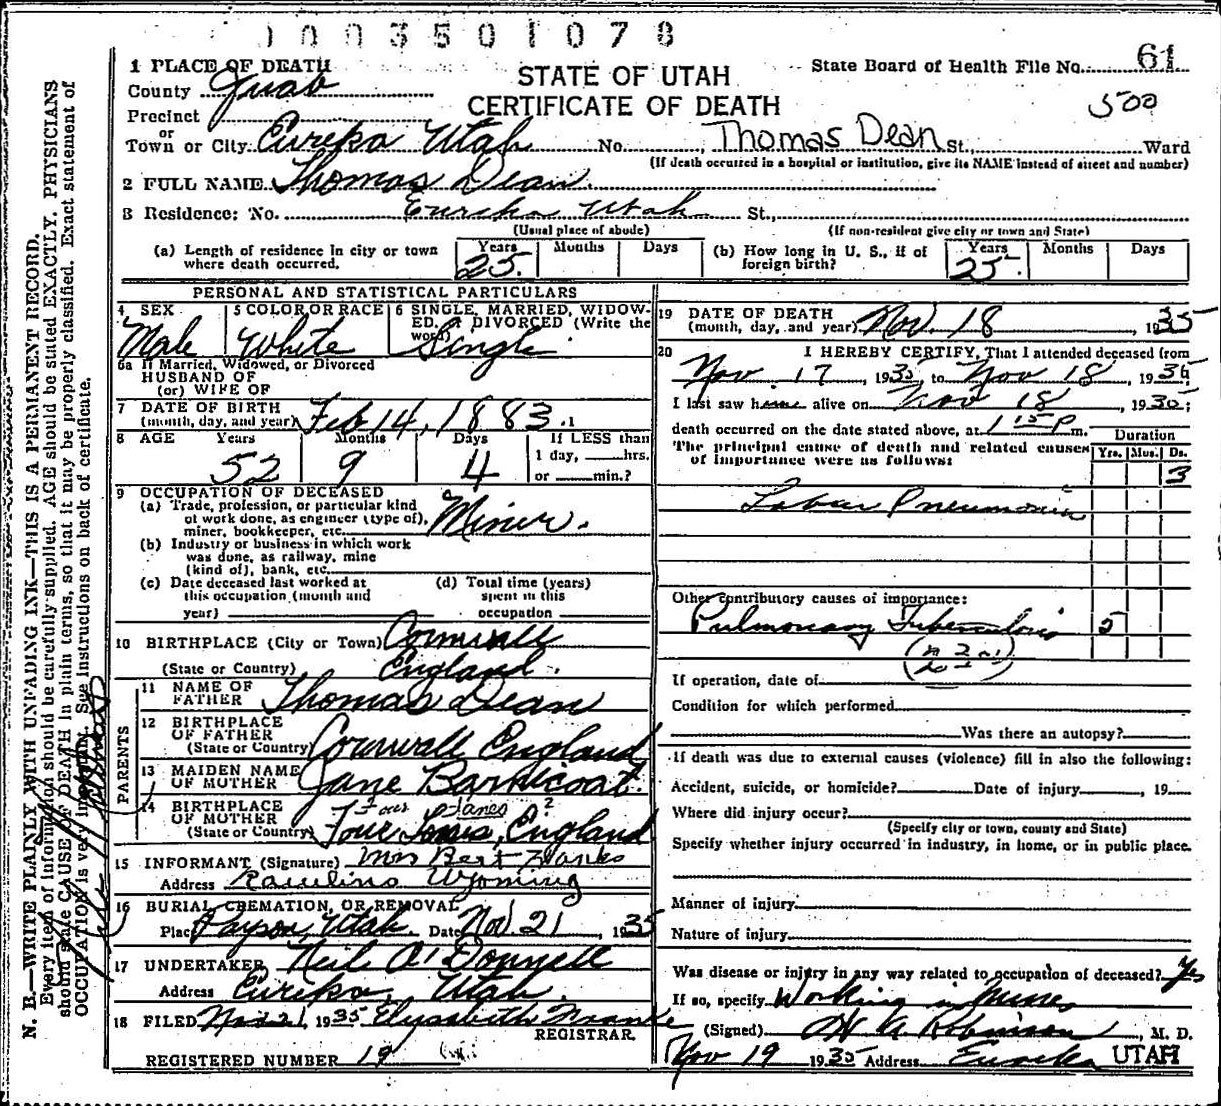 1003501078
1 PLACE OF DEATH
STATE OF UTAH
CERTIFICATE OF DEATH
State Board of Health File No. 61
500
County Juab
Precinct
or
Town or City Eureka Utah No. Thomas Dean St., Ward
(If death occurred in a hospital or institution, give its NAME instead of street and number)
2 FULL NAME Thomas Dean
3 Residence: No. Eureka Utah St.,
(Usual place of abode) (If non-resident give city or town and State)
(a) Length of residence in city or town where death occurred. Years 25 Months Days
(b) How long in U. S., if of foreign birth? Years 25 Months Days
PERSONAL AND STATISTICAL PARTICULARS
4 SEX Male
5 COLOR OR RACE White
6 SINGLE, MARRIED, WIDOWED, or DIVORCED (Write the word) Single
6a If Married, Widowed, or Divorced
HUSBAND OF
(or) WIFE OF
7 DATE OF BIRTH
(month, day, and year) Feb 14, 1883
8 AGE Years 52 Months 9 Days 4
If LESS than
1 day, hrs.
or min.?
9 OCCUPATION OF DECEASED
(a) Trade, profession, or particular kind
of work done, as engineer (type of),
miner, bookkeeper, etc. Miner.
(b) Industry or business in which work
was done, as railway, mine
(kind of), bank, etc.
(c) Date deceased last worked at
this occupation (month and
year)
(d) Total time (years)
spent in this
occupation
10 BIRTHPLACE (City or Town) Cornwall
(State or Country) England
PARENTS
11 NAME OF
FATHER Thomas Dean
12 BIRTHPLACE
OF FATHER
(State or Country) Cornwall England
13 MAIDEN NAME
OF MOTHER Jane Bardecoat
14 BIRTHPLACE
OF MOTHER Four Lanes ?
(State or Country) Four Lanes, England
15 INFORMANT (Signature) Mrs Bert Hanks
Address Rawlins Wyoming
16 BURIAL, CREMATION, OR REMOVAL
Place Payson, Utah. Date Nov 21, 1935
17 UNDERTAKER Neil O'Donnell
Address Eureka, Utah.
18 FILED Nov 21, 1935 Elysabeth
REGISTRAR.
REGISTERED NUMBER 19
19 DATE OF DEATH
(month, day, and year) Nov. 18, 1935
20 I HEREBY CERTIFY, That I attended deceased from
Nov. 17, 1935 to Nov 18, 1935
I last saw him alive on Nov 18, 1935;
death occurred on the date stated above, at 1 15 P m.
The principal cause of death and related causes
of importance were as follows:
Duration
Yrs. Mos. Ds.
3
Lobar Pneumonia
Other contributory causes of importance:
Pulmonary Tuberculosis 5
If operation, date of
Condition for which performed
Was there an autopsy?
If death was due to external causes (violence) fill in also the following:
Accident, suicide, or homicide? Date of injury, 19
Where did injury occur?
(Specify city or town, county and State)
Specify whether injury occurred in industry, in home, or in public place.
Manner of injury
Nature of injury
Was disease or injury in any way related to occupation of deceased? Yes
If so, specify Working in Mines
(Signed) Robinson, M. D.
Nov 19 1935 Address Eureka UTAH
N. B.—WRITE PLAINLY WITH UNFADING INK—THIS IS A PERMANENT RECORD.
Every item of information should be carefully supplied. AGE should be stated EXACTLY. PHYSICIANS
should state CAUSE OF DEATH in plain terms, so that it may be properly classified. Exact statement of
OCCUPATION is very important. See instructions on back of certificate.